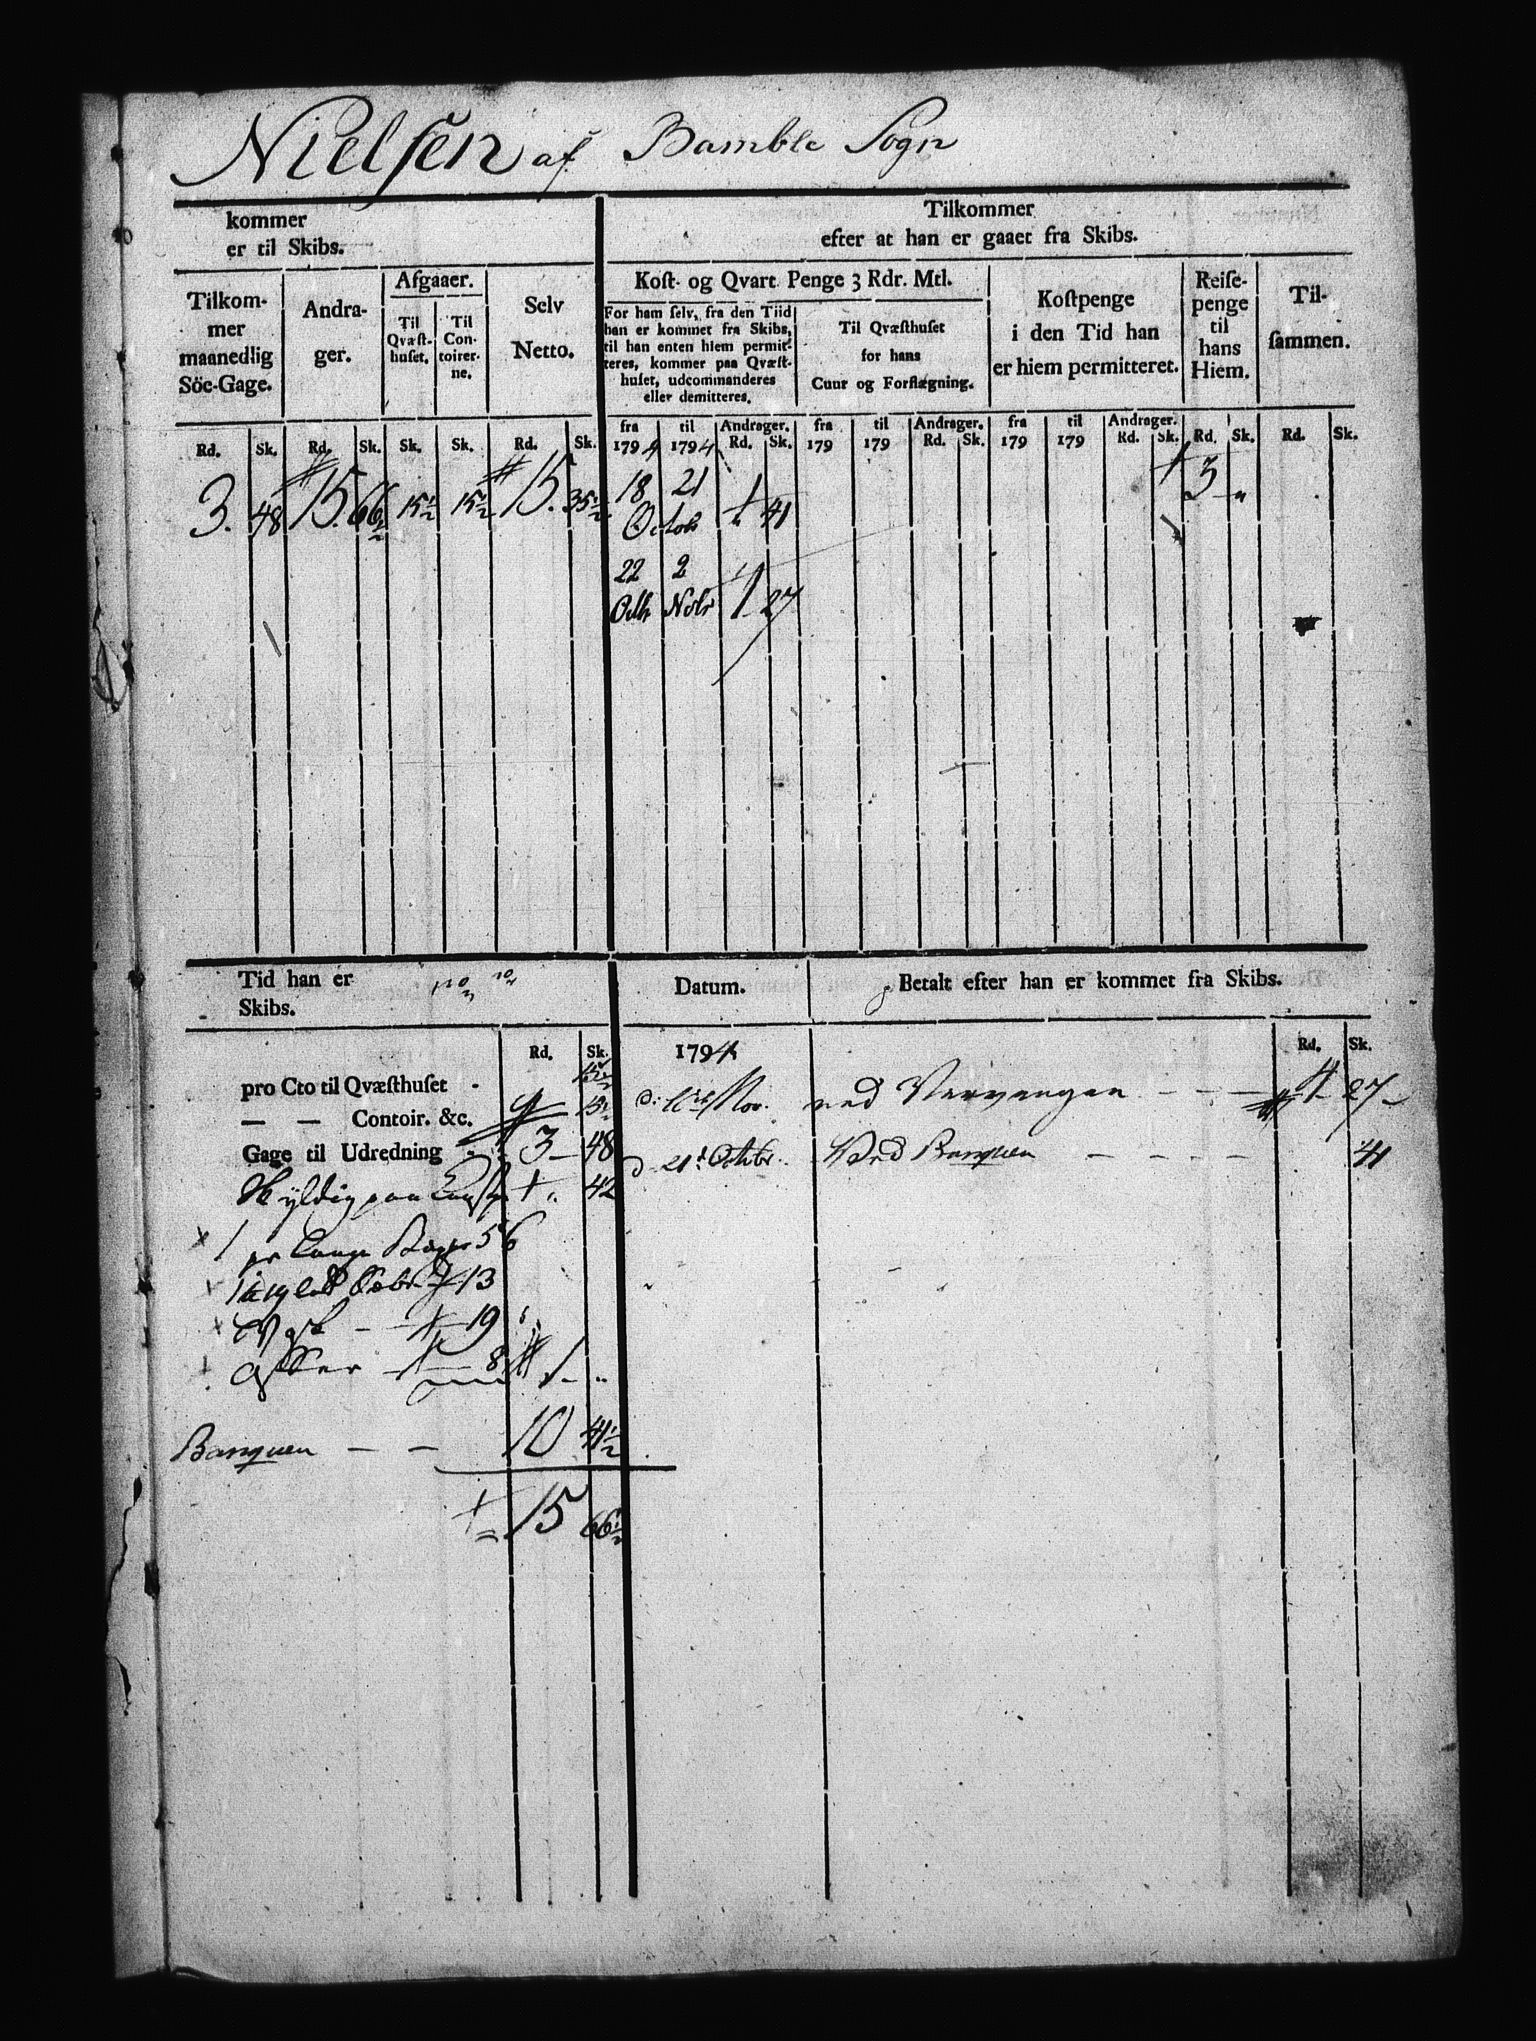 Nielsen af Bamble Sogn
kommer
er til Skibs.
Tilkommer
efter at han er gaaet fra Skibs.
Tilkom-
mer
maanedlig
Söe-Gage.
Andra-
ger.
Afgaaer.
Til
Qvæst-
huset.
Til
Con-
toirer-
ne.
Selv
Netto.
Kost- og Qvart Penge 3 Rdr. Mtl.
For ham selv, fra den Tiid
han er kommet fra Skibs,
til han enten hiem permit-
teres, kommer paa Qvæst-
huset, udcommanderes
eller demitteres.
Til Qvæsthuset
for hans
Cuur og Forflegning.
Kostpenge
i den Tid han
er hiem permitteret.
Reise-
penge
til
hans
Hiem.
Til-
sammen.
Rd. Sk. Rd. Sk. Sk. Sk. Rd. Sk.
fra til Andrager. fra til Andrager. fra til Andrager.
1794 1794 Rd. Sk. 179 179 Rd. Sk. 179 179 Rd. Sk. Rd. Sk. Rd. Sk.
3. 48 15. 66½ 15½ 15½ 15. 35½ 18 21 41 3
Octob
22 2
Octb Nobr 1 27
Tid han er
Skibs.
Datum.
Betalt efter han er kommet fra Skibs.
Rd. Sk. 1794 Rd. Sk.
pro Cto til Qvæsthuset 15½
— — Contoir. &c. 15½
Gage til Udredning 3 - 48
Skyldig paa 42
1 pr Lange 56
13
19
8 1
Banquen — — 10 41½
15 66½
Nov. ved 1 27
d 21 Octobr. Ved Banquen 41